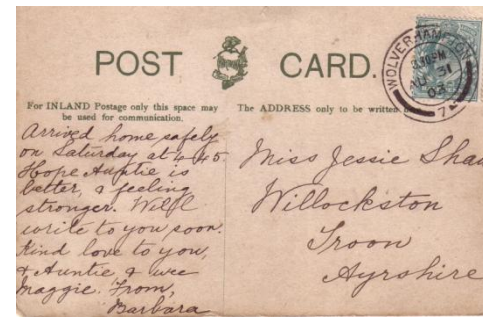 POST CARD.
For INLAND Postage only this space may
be used for communication.
The ADDRESS only to be written
WOLVERHAMPTON
31
03
74
Arrived home safely
on Saturday at 4.45.
Hope Auntie is
better, & feeling
stronger. Will
write to you soon.
Kind love to you,
& Auntie & wee
Maggie. From,
Barbara
Miss Jessie Shaw
Willockston
Troon
Ayrshire